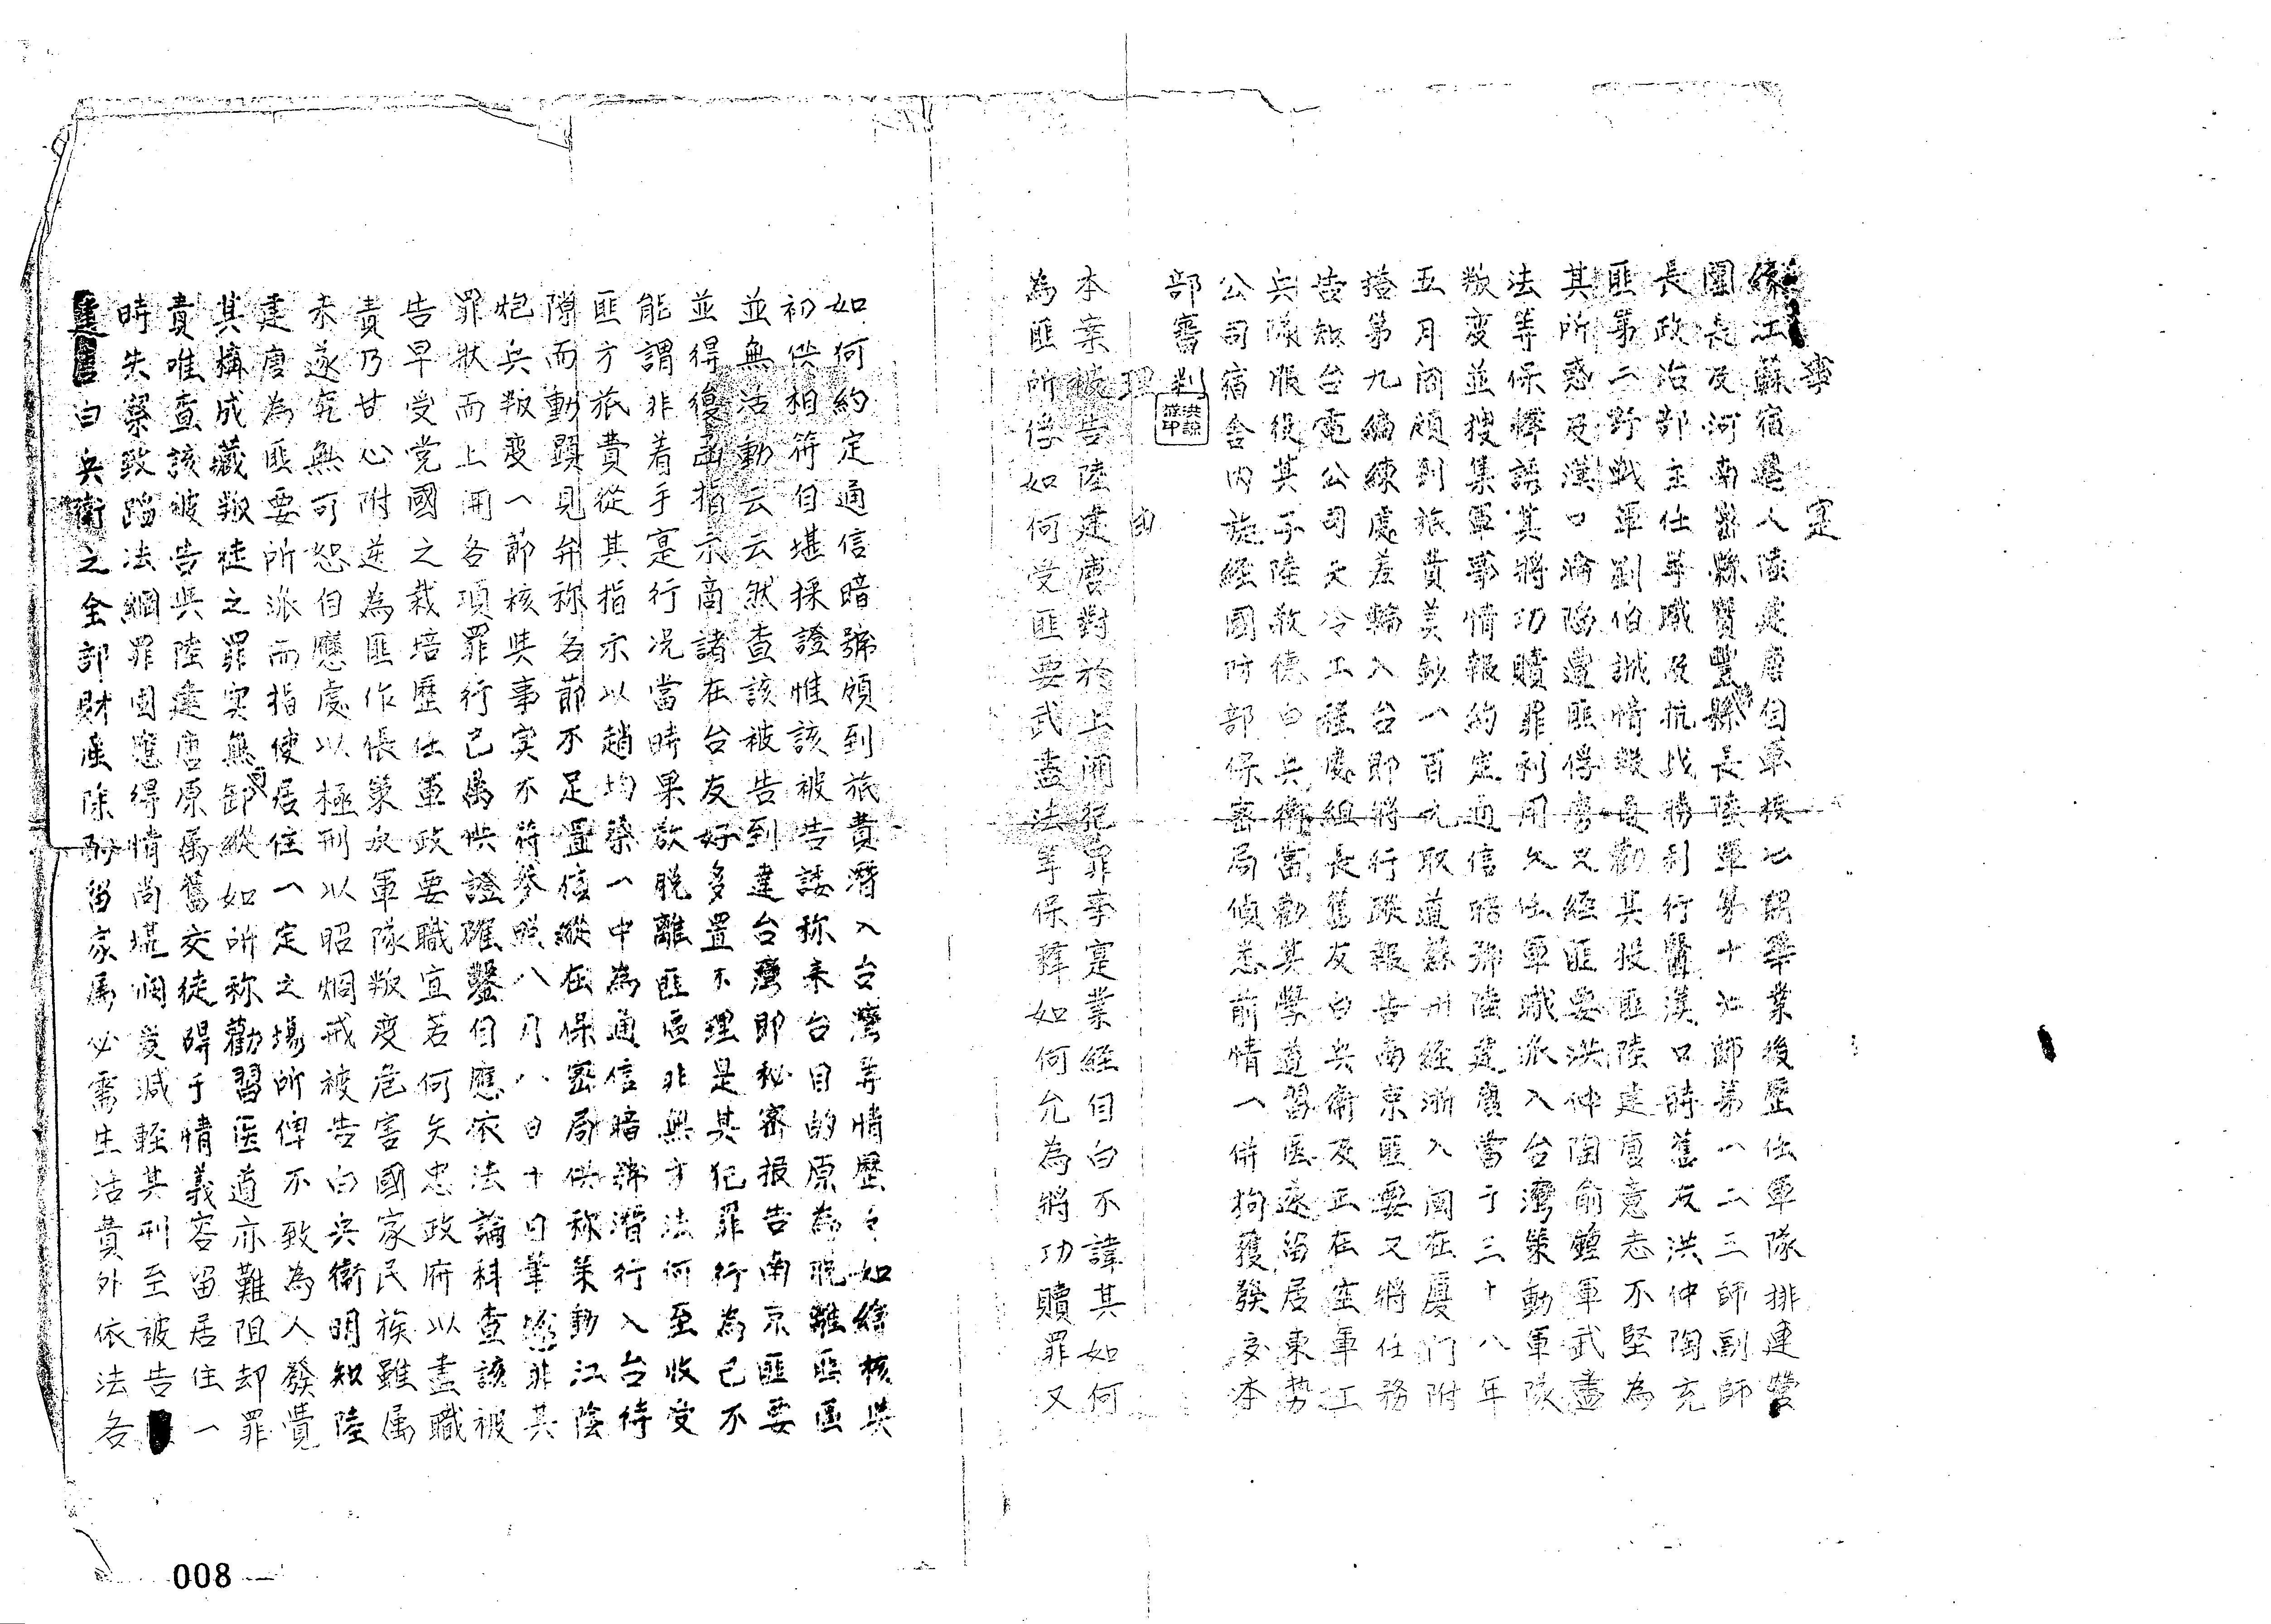 事實
緣江蘇宿遷人陸建唐自軍校七期畢業後歷任軍隊排連營
團長及河南密縣賈豐縣長陸軍第十七師第一二三師副師
長政治部主任等職及抗战勝利行醫漢口時舊友洪仲陶充
匪第二野戰軍劉伯誠情報員勸其投匪陸建唐意志不堅為
其所惑及漢口淪陷遭匪俘虜又經匪要洪仲陶俞鍾軍武盡
法等保釋語其將功贖罪利用久任軍職派入台灣策動軍隊
叛变並搜集軍事情報約定通信暗號陸建唐當于三十八年
五月間領到旅費美鈔一百元取道蘇州經浙入閩在厦门附
搭第九編練處差輪入台即將行蹤報告南京匪要又將任務
告知台電公司大冷工程處組長舊友白兵衛及正在空軍江
兵隊服役其子陸敦德白兵衛當勸其學道習医遂留居東势
公司宿舍内旋經國防部保密局偵悉前情一併拘獲發交本
部審判
理由
本案被告陸建唐對於上開犯罪事實業經自白不諱其如何
為匪所俘如何受匪要武盡法等保釋如何允為將功贖罪又
如何約定通信暗號領到旅費潛入台灣等情歷々如繪核與
初供相符自堪採證惟該被告諉称来台目的原為脱離匪區
並無活動云云然查該被告到達台灣即秘密报告南京匪要
並得復函指示商諸在台友好多置不理是其犯罪行為已不
能謂非着手寔行况當時果欲脱離匪區非無方法何至收受
匪方旅費從其指示以趙均榮一中為通信暗號潛行入台待
隙而動顕見弁称各節不足置信縱在保密局供称策動江陰
炮兵叛变一節核與事实不符參照八月八日十日筆錄非其
罪狀而上開各項罪行已萬供證確鑿自應依法論科查該被
告早受党國之栽培歷任軍政要職宜若何矢忠政府以盡職
責乃甘心附逆為匪作倀策反軍隊叛变危害國家民族雖属
未遂究無可恕自應處以極刑以昭烱戒被告白兵衛明知陸
建唐為匪要所派而指使居住一定之場所俾不致為人發覺
其構成藏叛徒之罪实無可卸縱如所称勸習医道亦難阻却罪
責唯查該被告與陸建唐原属舊交徒碍于情義容留居住一
時失察致蹈法網罪固應得情尚堪憫爰減輕其刑至被告
建唐白兵衛之全部財産除酌留家属必需生活費外依法各
008